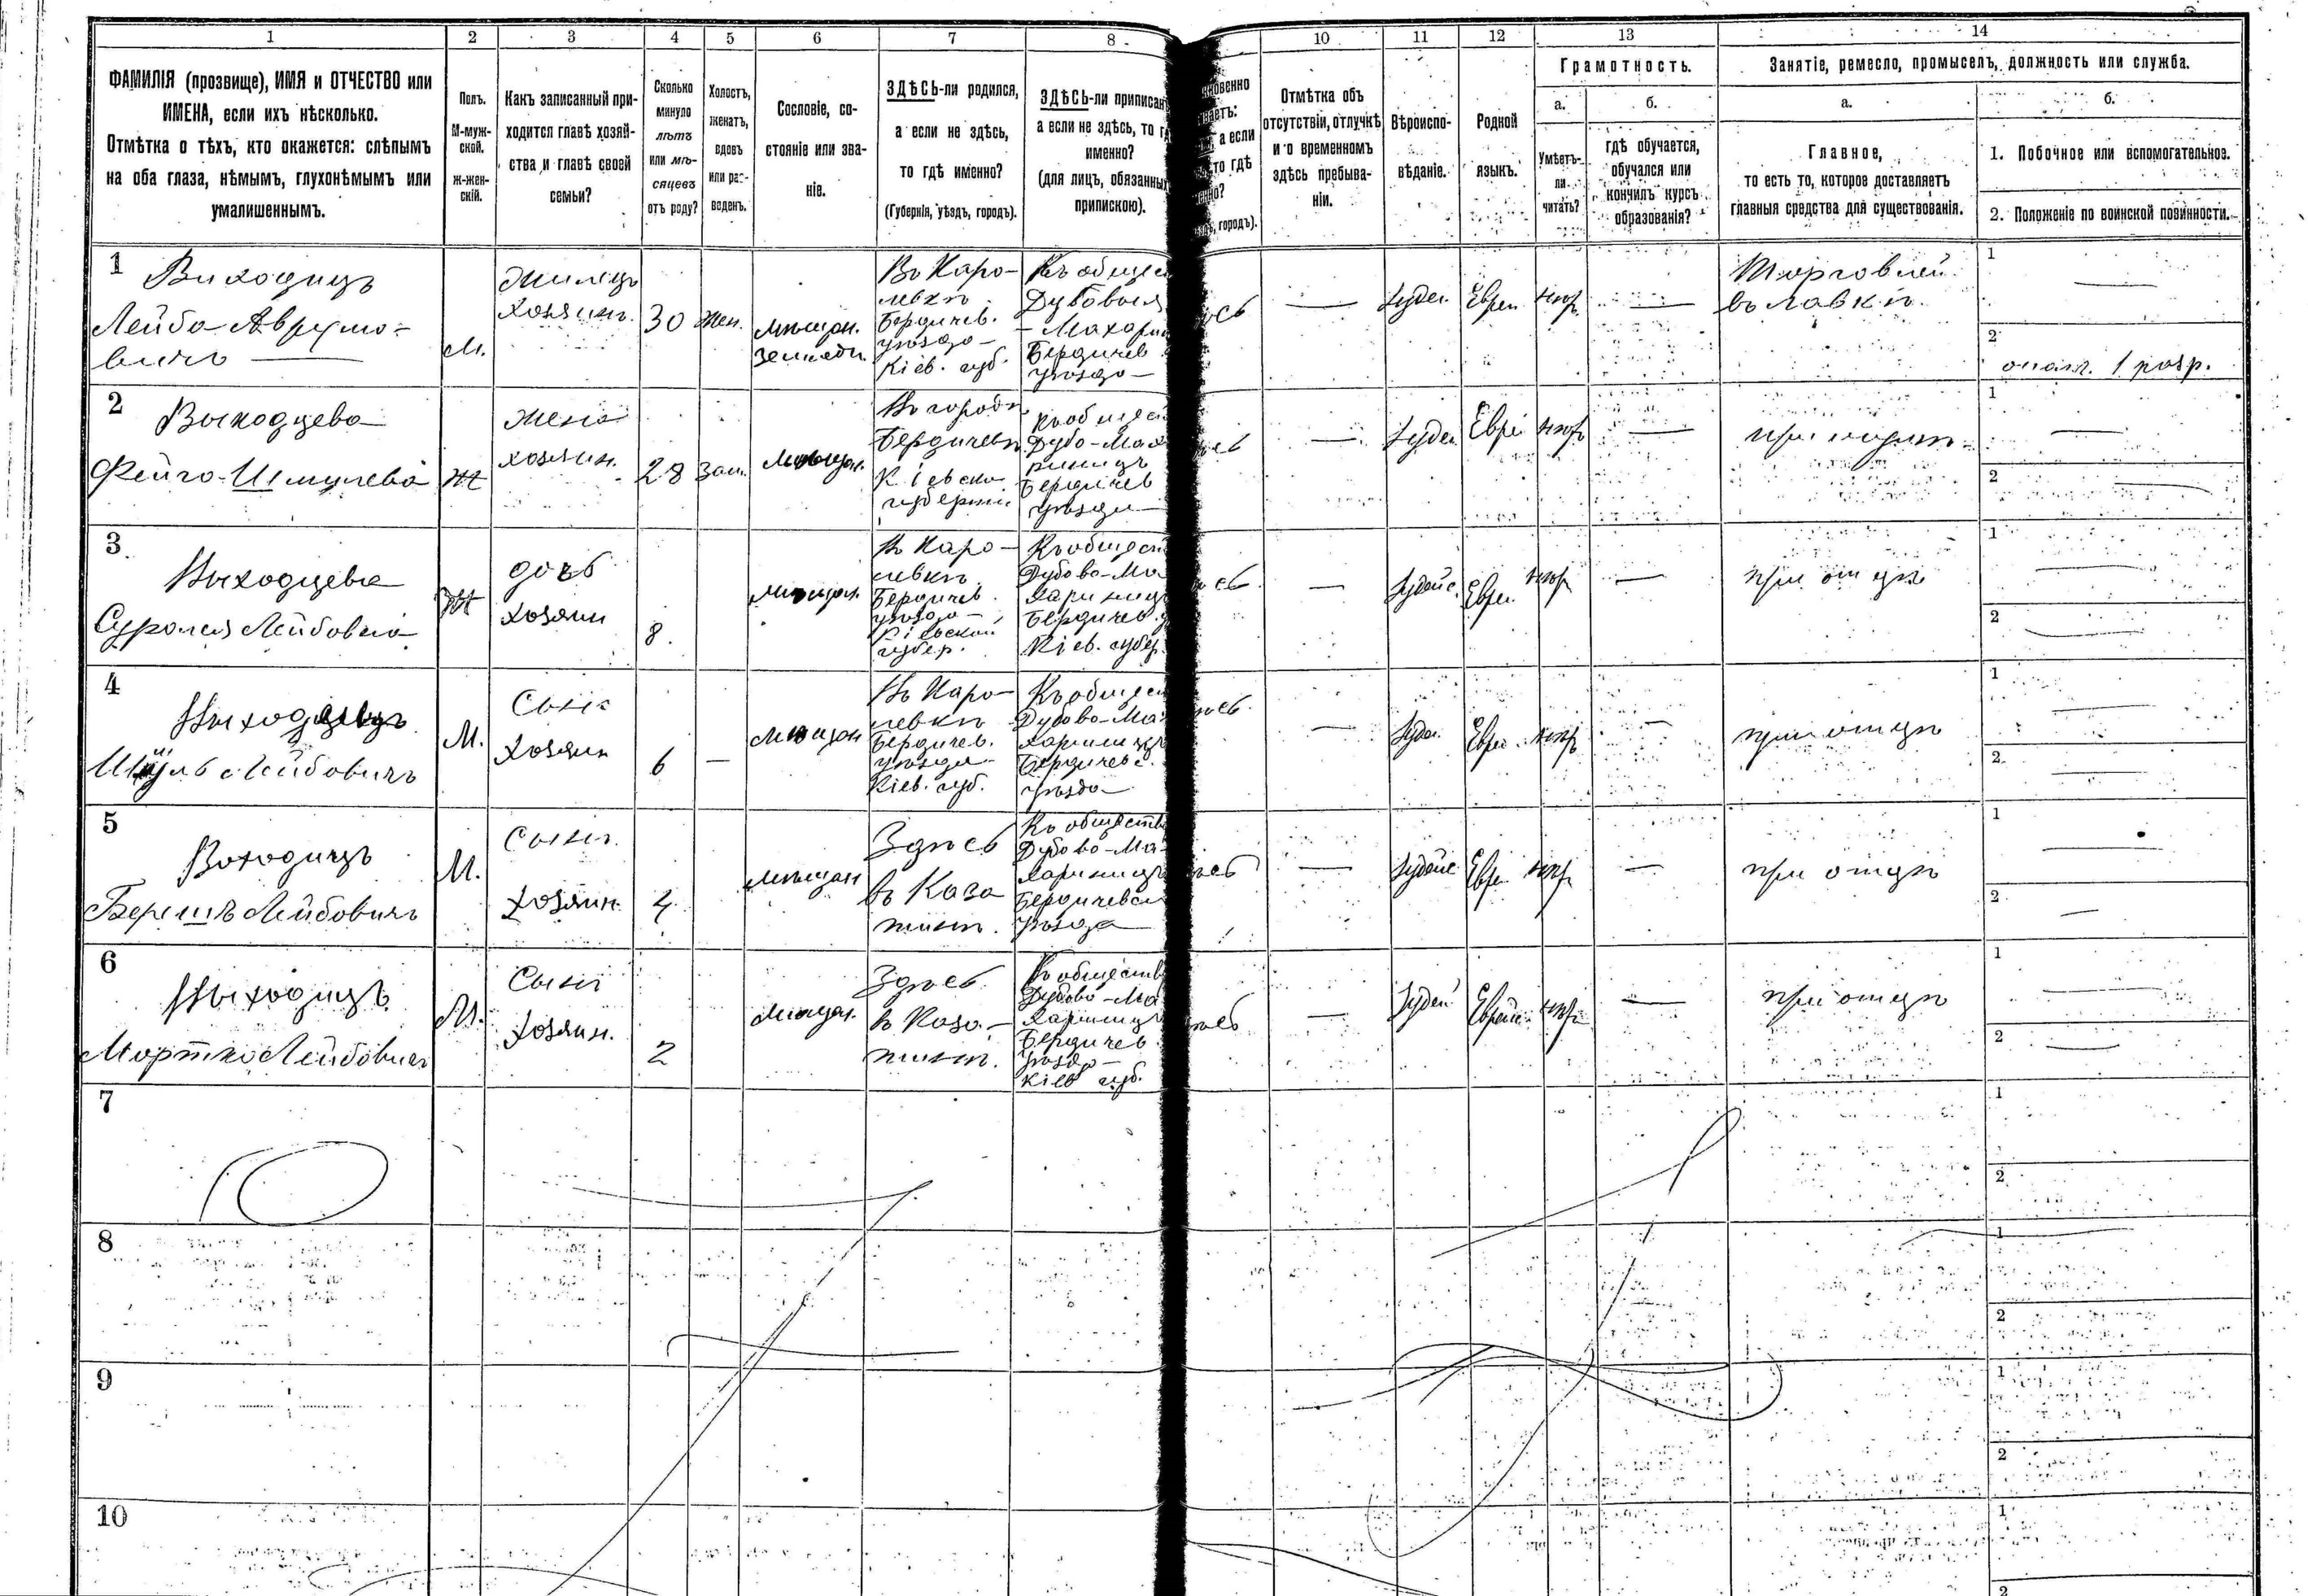 1 2 3 4 5 6 7 8 10 11 12 13 14
ФАМИЛІЯ (прозвище), ИМЯ и ОТЧЕСТВО или
ИМЕНА, если ихъ нѣсколько.
Отмѣтка о тѣхъ, кто окажется: слѣпымъ
на оба глаза, нѣмымъ, глухонѣмымъ или
умалишеннымъ.
Полъ.
М-муж-
ской.
ж-жен-
скій.
Какъ записанный при-
ходится главѣ хозяй-
ства и главѣ своей
семьи?
Сколько
минуло
лѣтъ
или мѣ-
сяцевъ
отъ роду?
Холостъ,
женатъ,
вдовъ
или раз-
веденъ.
Сословіе, со-
стояніе или зва-
ніе.
ЗДѢСЬ-ли родился,
а если не здѣсь,
то гдѣ именно?
(Губернія, уѣздъ, городъ).
ЗДѢСЬ-ли приписан
а если не здѣсь, то г
именно?
(для лицъ, обязанны
припискою).
а если
то гдѣ
городъ).
Отмѣтка объ
отсутствіи, отлучкѣ
и о временномъ
здѣсь пребыва-
ніи.
Вѣроиспо-
вѣданіе.
Родной
языкъ.
Грамотность.
а. б.
Умѣетъ-
ли
читать?
гдѣ обучается,
обучался или
кончилъ курсъ
образованія?
Занятіе, ремесло, промыселъ, должность или служба.
а. б.
Главное,
то есть то, которое доставляетъ
главныя средства для существованія.
1. Побочное или вспомогательное.
2. Положеніе по воинской повинности.
1
Виходицъ
Лейба Аврумо-
вичъ
М.
Жилецъ
Хозяинъ.
30
Жен.
Мѣщан.
В Каро-
левкѣ
Бердичев.
уѣзда
Кіев. губ.
Къ общес
Дубовыя
Махарин
Бердичев
уѣзда
Іудей.
Евреи
Торговлей
въ лавкѣ.
1
2
1 разр.
2
Выходцева
Фейга Шмулева
Ж
Жена
хозяин.
28
Зам.
Мѣщан.
В городѣ
Бердичевѣ
Кіевско
губерніи
Къ общест
Дубо-Мах
Бердичев
уѣзда
Іудей
Еврей
при мужѣ
1
2
3
Выходцева
Лейбовна
Ж
дочь
хозяин
8.
Мѣщан.
В Каро-
левкѣ
Бердичев.
уѣзда
Кіевской
губер.
Къ общест
Дубово-Ма
хариниц
Бердичев. у
Кіев. губер.
Іудейс.
Евреи.
при отцѣ
1
2
4
Лейбовичъ
М.
Сынъ
Хозяин
6
Мѣщан
В Каро-
левкѣ
Бердичев.
уѣзда
Кіев. губ.
Къ общест
Дубово-Ма
хариницъ
Бердичевс.
уѣзда
Іудей.
Евреи.
при отцѣ
1
2
5
Воходицъ
Берешъ Лейбовичъ
М.
Сынъ.
Хозяин.
4
Мѣщан
Здѣсь
в Каза
тинѣ.
Къ обществ
Дубово-Ма-
хариницъ
Бердичевск
уѣзда
Іудейс
Еврей
при отцѣ
1
2
6
Выходицъ
Мортко Лейбовичъ
М.
Сынъ
Хозяин.
2
Мѣщан.
Здѣсь
в Каза-
тинѣ.
Къ обществ
Дубово-Ма
хариницъ
Бердичев
уѣзда
Кіев губ.
Іудей
Еврей
при отцѣ
1
2
7
1
2
8
1
2
9
1
2
10
1
2